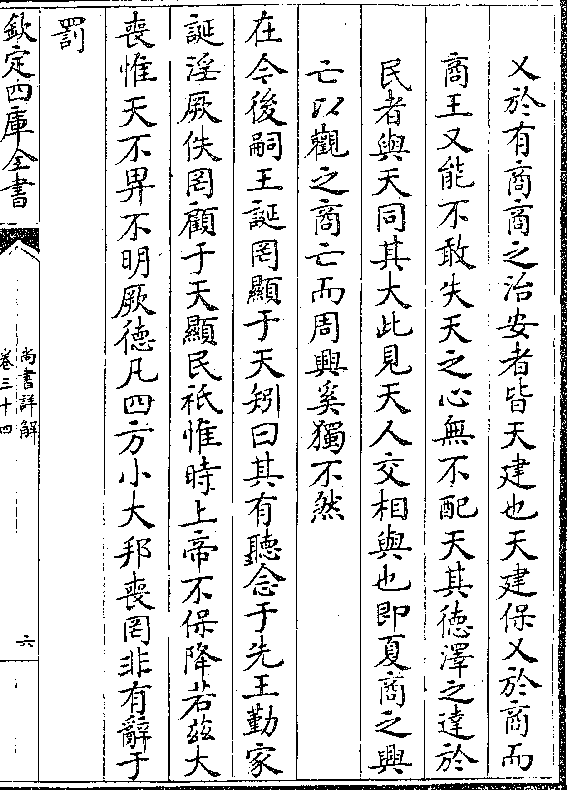 乂於有商商之治安者皆天建也天建保乂於商而
商王又能不敢失天之心無不配天其徳澤之達於
民者與天同其大此見天人交相與也即夏商之興
亡以觀之商亡而周興奚獨不然
在今後嗣王誕罔顯于天矧曰其有聽念于先王勤家
誕淫厥佚罔顧于天顯民祇惟時上帝不保降若兹大
喪惟天不畀不明厥徳凡四方小大邦喪罔非有辭于
罰
欽定四庫全書
尚書詳解
卷三十四
六